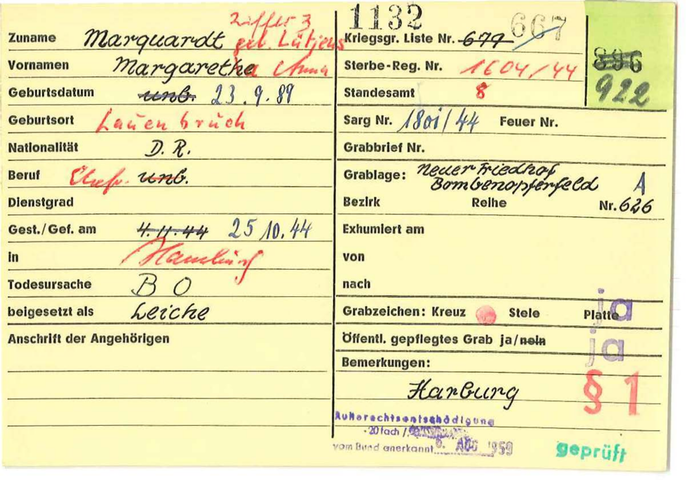 Ziffer 3
Zuname Marquardt geb. Lütjens
Vornamen Margarethe Anna
Geburtsdatum unb. 23.9.89
Geburtsort Lauenbruch
Nationalität D.R.
Beruf Ehefr. unb.
Dienstgrad
Gest./Gef. am 4.11.44 25.10.44
in Hamburg
Todesursache BO
beigesetzt als Leiche
Anschrift der Angehörigen
1132
Kriegsgr. Liste Nr. 679 667
Sterbe-Reg. Nr. 1604/44
Standesamt 8
896
922
Sarg Nr. 1801/44 Feuer Nr.
Grabbrief Nr.
Grablage: Neuer Friedhof
Bombenopferfeld A
Bezirk Reihe Nr. 626
Exhumiert am
von
nach
Grabzeichen: Kreuz Stele Platte ja
Öffentl. gepflegtes Grab ja/nein ja
Bemerkungen:
Harburg § 1
Ruherechtsentschädigung
-20fach/
vom Bund anerkannt 6. AUG 1959
geprüft